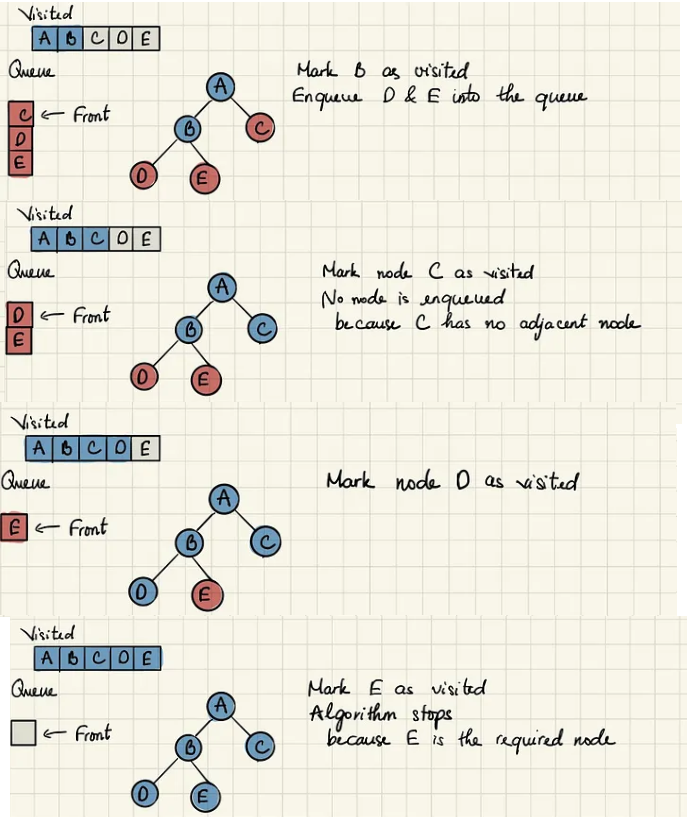 Visited
A B C D E
Queue
C ← Front
D
E
A
B C
D E
Mark B as visited
Enqueue D & E into the queue
Visited
A B C D E
Queue
D ← Front
E
A
B C
D E
Mark node C as visited
No node is enqueued
because C has no adjacent node
Visited
A B C D E
Queue
E ← Front
A
B C
D E
Mark node D as visited
Visited
A B C D E
Queue
← Front
A
B C
D E
Mark E as visited
Algorithm stops
because E is the required node